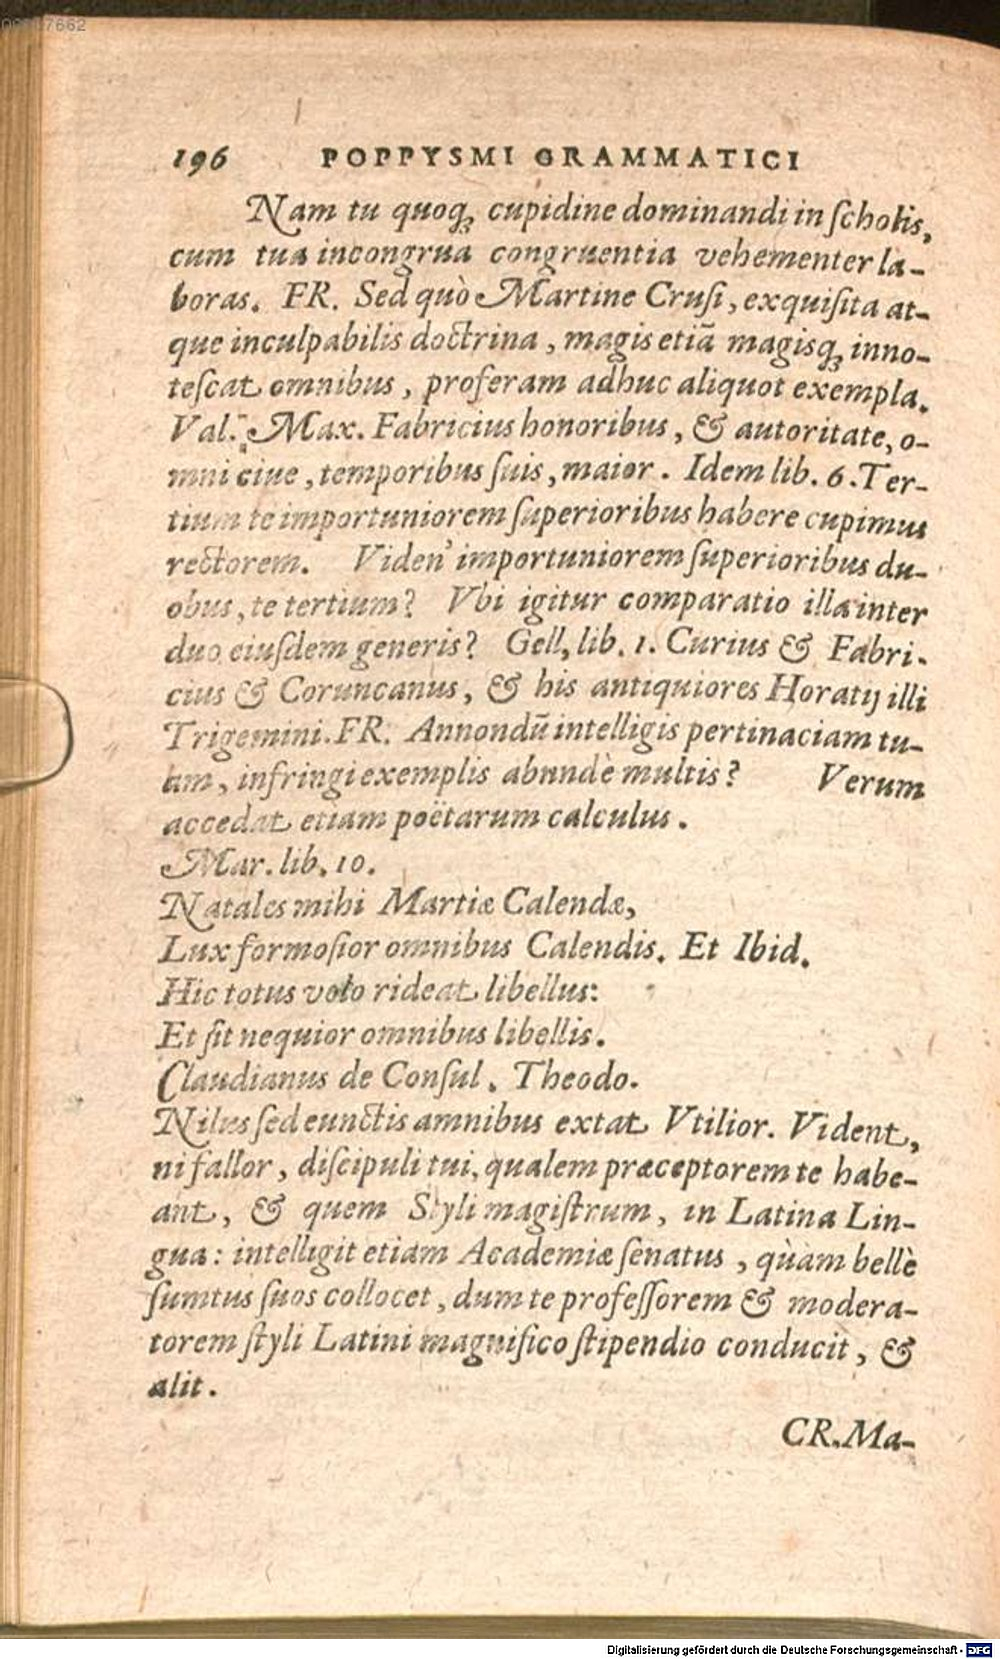 196 POPPYSMI GRAMMATICI
Nam tu quoq; cupidine dominandi in ſcholis,
cum tua incongrua congruentia vehementer la-
boras. FR. Sed quò Martine Cruſi, exquiſita at-
que inculpabilis doctrina, magis etiã magisq; inno-
teſcat omnibus, proferam adhuc aliquot exempla.
Val. Max. Fabricius honoribus, & autoritate, o-
mni ciue, temporibus ſuis, maior. Idem lib. 6. Ter-
tium te importuniorem ſuperioribus habere cupimus
rectorem. Viden' importuniorem ſuperioribus du-
obus, te tertium? Vbi igitur comparatio illa inter
duo eiuſdem generis? Gell, lib. 1. Curius & Fabri-
cius & Coruncanus, & his antiquiores Horatij illi
Trigemini. FR. Annondũ intelligis pertinaciam tu-
am, infringi exemplis abundè multis? Verum
accedat etiam poëtarum calculus.
Mar. lib. 10.
Natales mihi Martiæ Calendæ,
Lux formoſior omnibus Calendis. Et Ibid.
Hic totus volo rideat libellus:
Et ſit nequior omnibus libellis.
Claudianus de Conſul. Theodo.
Nilus ſed cunctis amnibus extat Vtilior. Vident,
ni fallor, diſcipuli tui, qualem præceptorem te habe-
ant, & quem Styli magiſtrum, in Latina Lin-
gua: intelligit etiam Academiæ ſenatus, quàm bellè
ſumtus ſuos collocet, dum te profeſſorem & modera-
torem ſtyli Latini magnifico ſtipendio conducit, &
alit.
CR. Ma-
Digitalisierung gefördert durch die Deutsche Forschungsgemeinschaft - DFG